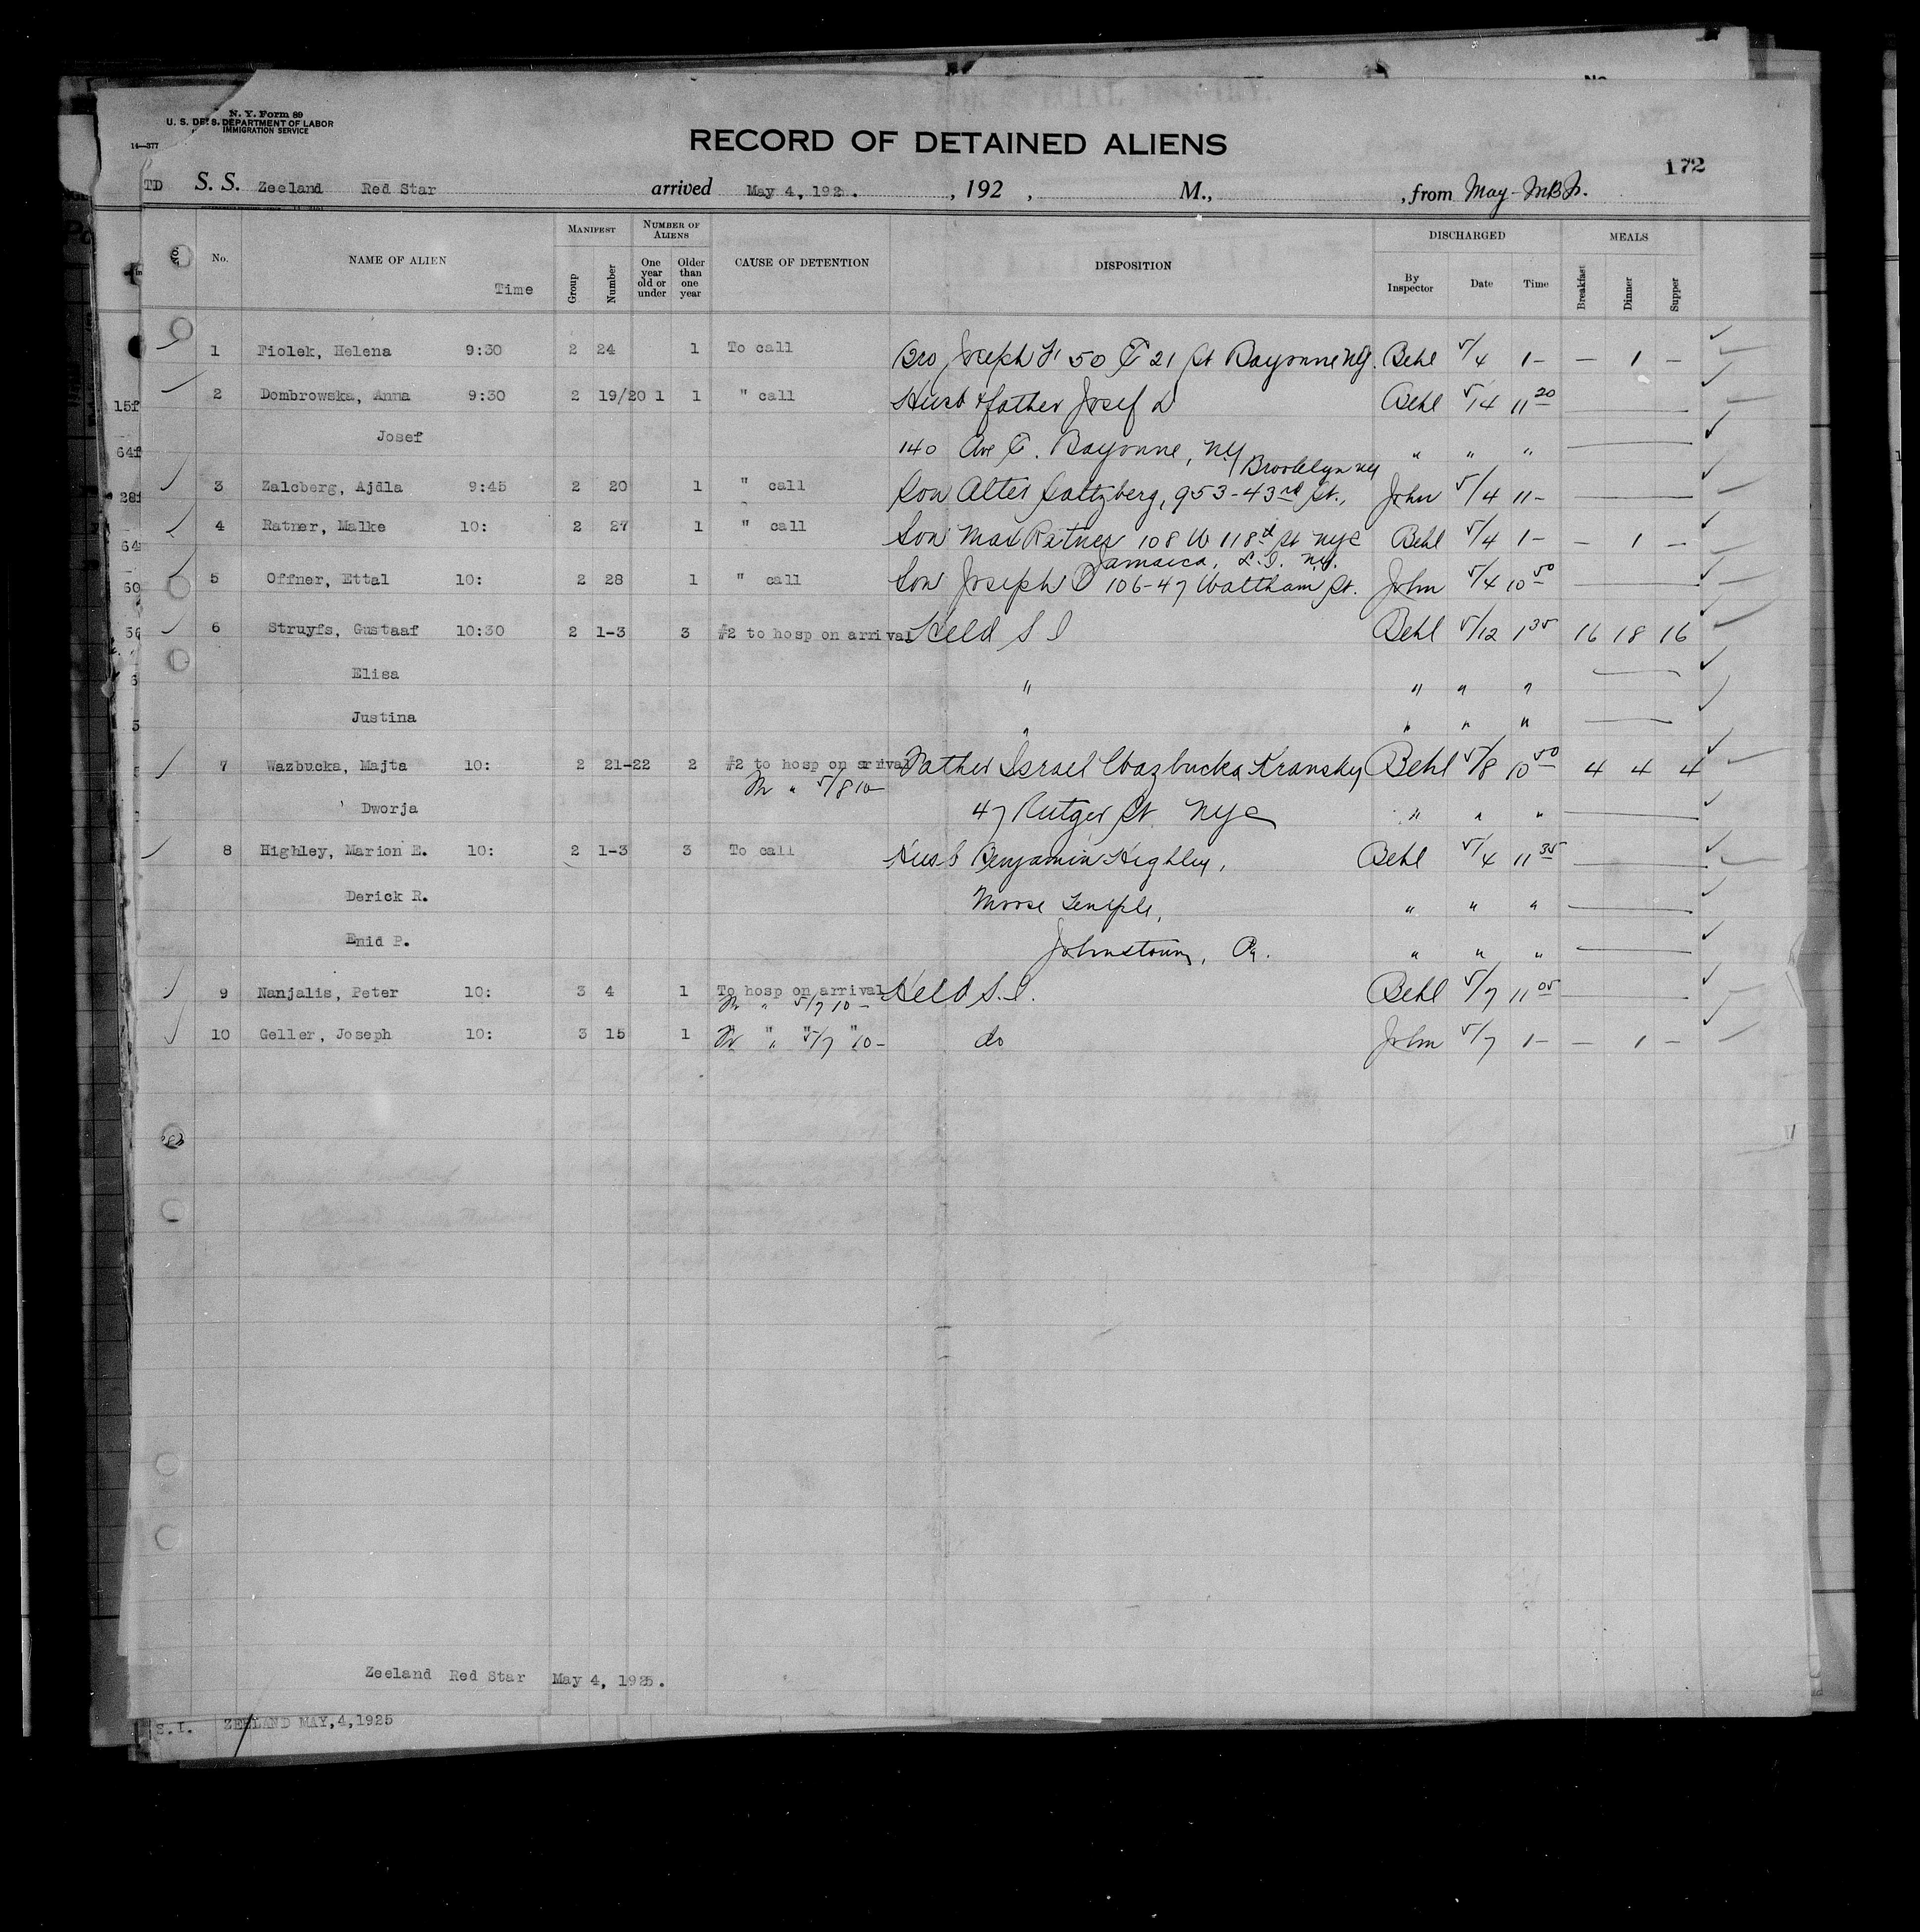 N. Y. Form 89
U. S. DEPARTMENT OF LABOR
IMMIGRATION SERVICE
14—377
RECORD OF DETAINED ALIENS
172
TD S. S. Zeeland Red Star arrived May 4, 192 . , 192 , M., , from May - MBJr.
MANIFEST NUMBER OF ALIENS DISCHARGED MEALS
No. No. NAME OF ALIEN Time Group Number One year old or under Older than one year CAUSE OF DETENTION DISPOSITION By Inspector Date Time Breakfast Dinner Supper
1 Fiolek, Helena 9:30 2 24 1 To call Bro Joseph F 50 E 21 St Bayonne NJ. Behl 5/4 1- — 1 —
2 Dombrowska, Anna 9:30 2 19/20 1 1 " call Husb & father Josef D Behl 5/4 11 20
Josef 140 Ave C. Bayonne, NJ " " "
Brooklyn NY
3 Zalcberg, Ajdla 9:45 2 20 1 " call Son Alter Saltzberg, 953-43rd St., John 5/4 11-
4 Ratner, Malke 10: 2 27 1 " call Son Max Ratner 108 W 118th St NYC Behl 5/4 1- — 1 —
Jamaica, L.I. NY.
5 Offner, Ettal 10: 2 28 1 " call Son Joseph O 106-47 Waltham St. John 5/4 10 50
6 Struyfs, Gustaaf 10:30 2 1-3 3 #2 to hosp on arrival Held S I Behl 5/12 1 35 16 18 16
Elisa " " " "
Justina " " " "
7 Wazbucka, Majta 10: 2 21-22 2 #2 to hosp on arrival Father Israel Wazbucka Kransky Behl 5/8 10 50 4 4 4
Fr " 5/8 10-
Dworja 47 Rutger St. NYC " " "
8 Highley, Marion E. 10: 2 1-3 3 To call Husb Benjamin Highley, Behl 5/4 11 35
Derick R. Moose Temple, " " "
Enid P. Johnstown, Pa. " " "
9 Nanjalis, Peter 10: 3 4 1 To hosp on arrival Held S.I. Behl 5/7 11 05
Fr " 5/7 10-
10 Geller, Joseph 10: 3 15 1 " " " Fr " 5/7 10- do John 5/7 1- — 1 —
Zeeland Red Star May 4, 1925.
S.I. ZEELAND MAY,4,1925